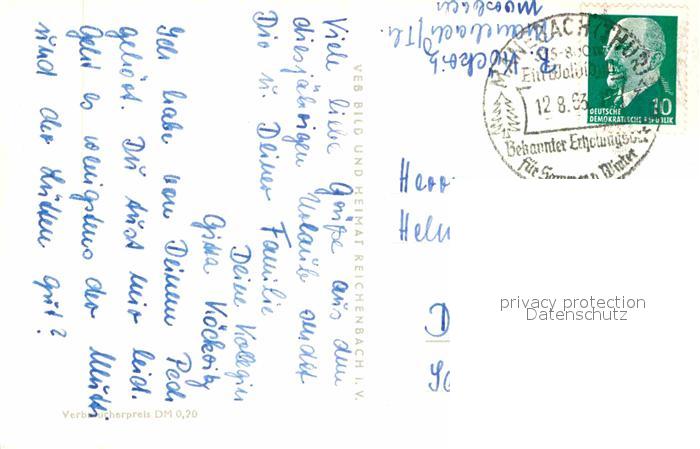 Viele liebe Grüße aus dem
diesjährigen Urlaub sendet
Dir u. Deiner Familie
Deine Kolegin
Gitta Köckritz
Ich habe von Deinem Pech
gehört. Du tust mir leid.
Geht es wenigstens der Mutti
und der gut?
VEB BILD UND HEIMAT REICHENBACH I. V.
Verbraucherpreis DM 0,20
Köckritz
(THÜR)
12.8.63
Bekannter Erholungsort
für Sommer u. Winter
DEUTSCHE
DEMOKRATISCHE REPUBLIK
10
Herr
Helm
D
privacy protection
Datenschutz